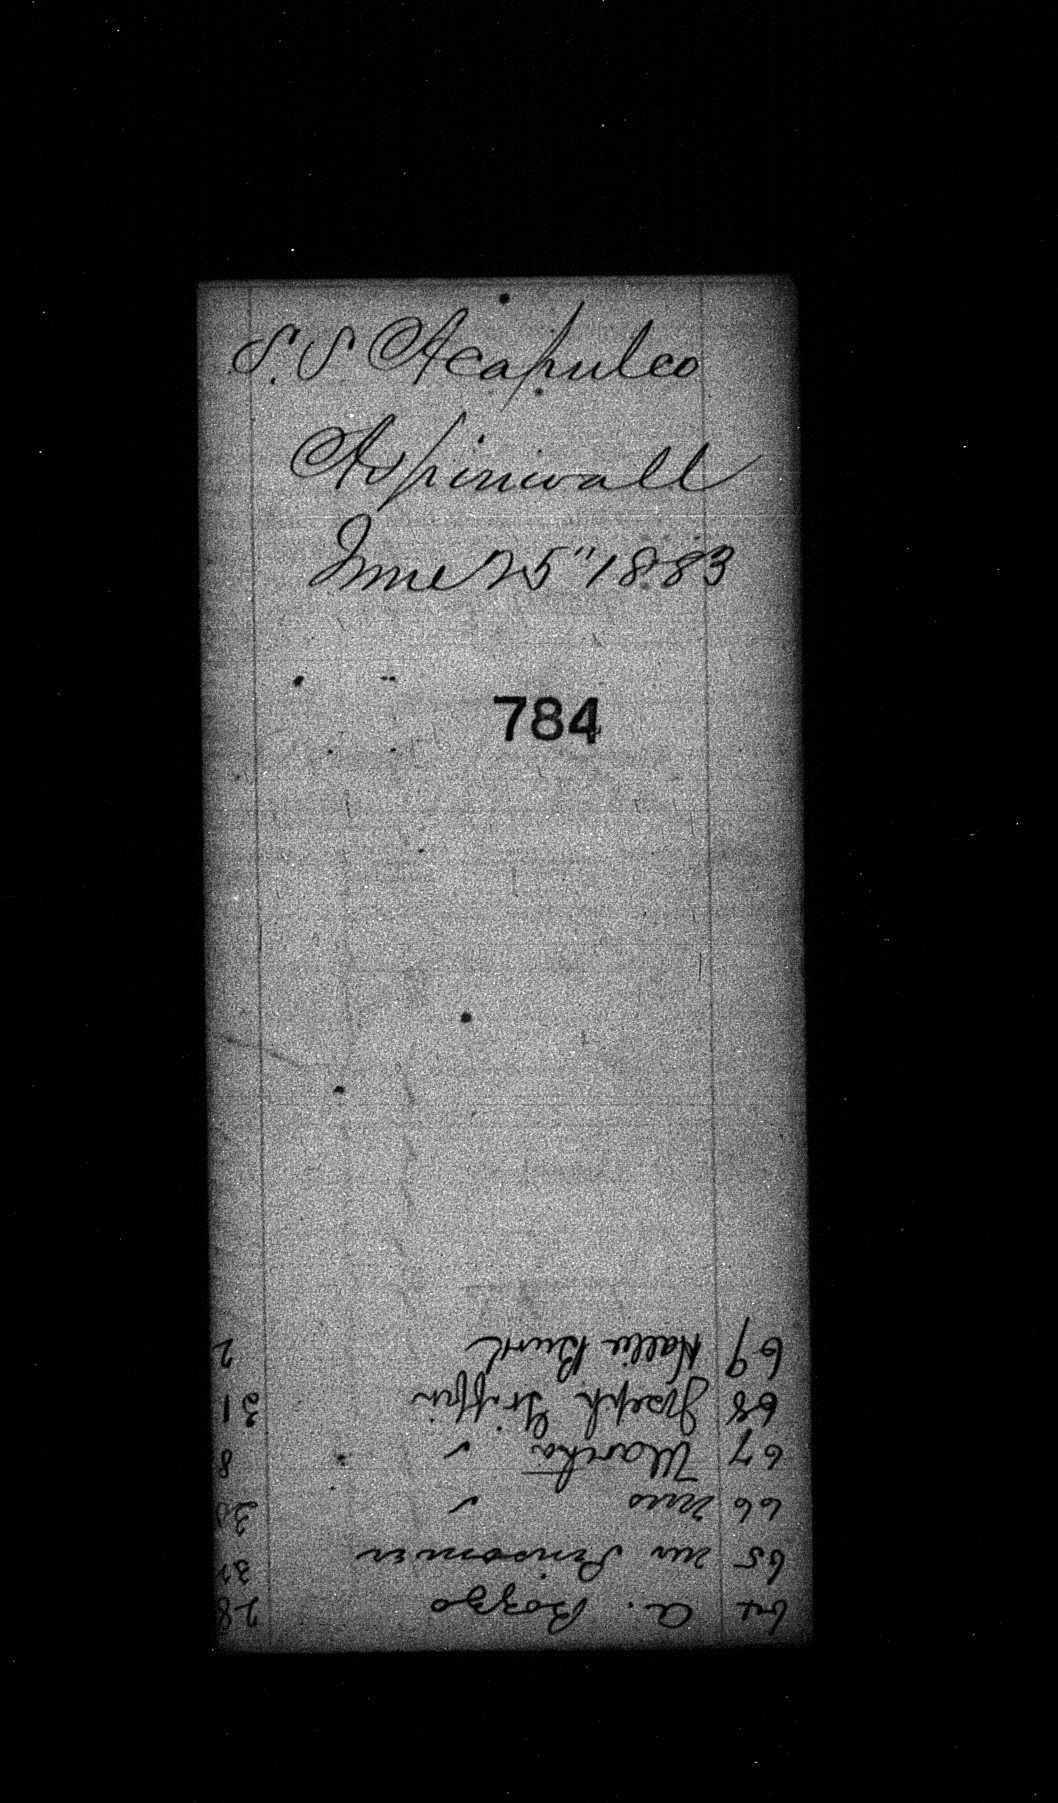 S.S Acapulco
Aspinwall
June 25" 1883
784
64 A. Bozzo 28
65 Mr Prisomer
66 Mrs ✓
67 Marka ✓ 8
68 Joseph Griffin 31
69 Hallie Burk 2